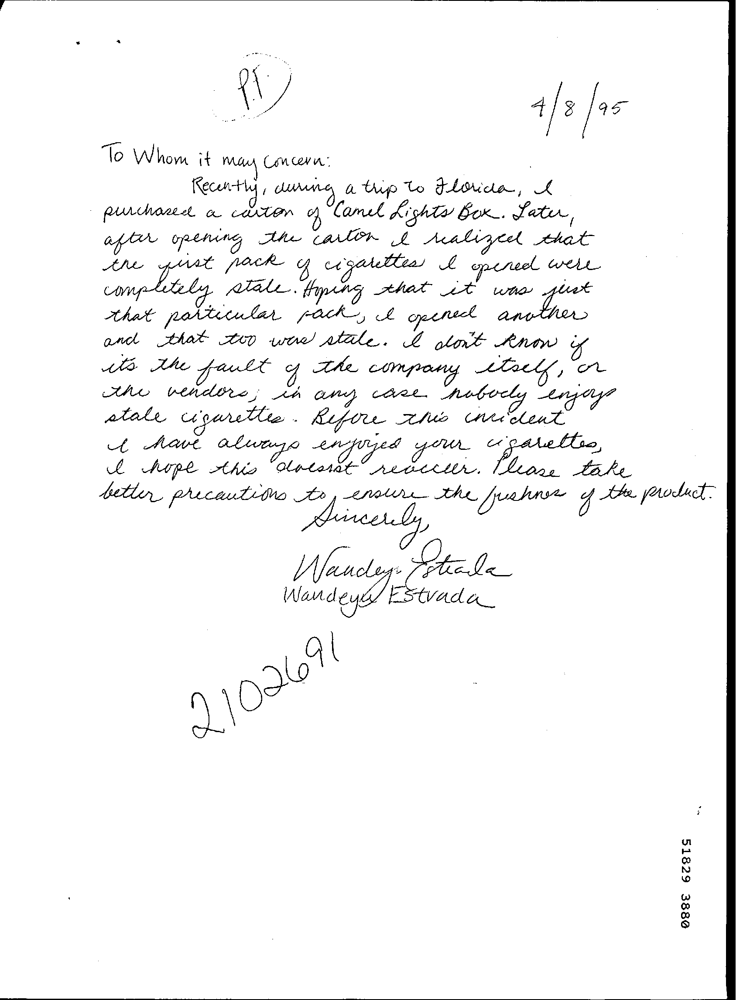 P.T.
4/8/95
To Whom it may concern:
Recently, during a trip to Florida, I
purchased a carton of Camel Lights Box. Later,
after opening the carton I realized that
the first pack of cigarettes I opened were
completely stale. Hoping that it was just
that particular pack, I opened another
and that too was stale. I don't know if
its the fault of the company itself, or
the vendors; in any case nobody enjoys
stale cigarettes. Before this incident
I have always enjoyed your cigarettes,
I hope this doesn't reoccur. Please take
better precautions to ensure the freshnes of the product.
Sincerely,
Wandeya Estrada
Wandeya Estrada
2102691
51829 3880